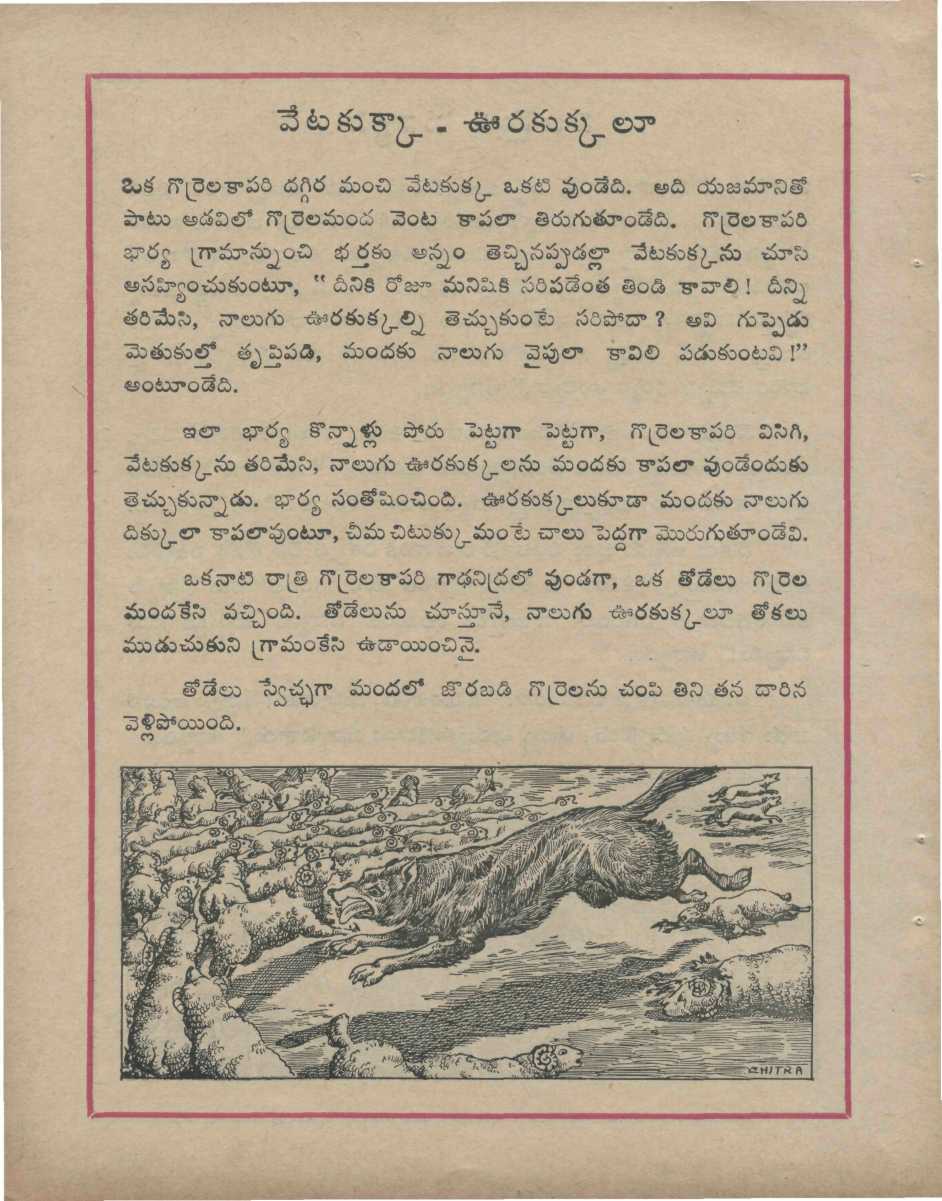 వేటకుక్కా - ఊరకుక్కలూ
ఒక గొర్రెలకాపరి దగ్గిర మంచి వేటకుక్క ఒకటి వుండేది. అది యజమానితో
పాటు అడవిలో గొర్రెలమంద వెంట కాపలా తిరుగుతూండేది. గొర్రెలకాపరి
భార్య గ్రామాన్నుంచి భర్తకు అన్నం తెచ్చినప్పుడల్లా వేటకుక్కను చూసి
అసహ్యించుకుంటూ, “ దీనికి రోజూ మనిషికి సరిపడేంత తిండి కావాలి! దీన్ని
తరిమేసి, నాలుగు ఊరకుక్కల్ని తెచ్చుకుంటే సరిపోదా? అవి గుప్పెడు
మెతుకుల్తో తృప్తిపడి, మందకు నాలుగు వైపులా కావిలి పడుకుంటవి!”
అంటూండేది.
ఇలా భార్య కొన్నాళ్లు పోరు పెట్టగా పెట్టగా, గొర్రెలకాపరి విసిగి,
వేటకుక్కను తరిమేసి, నాలుగు ఊరకుక్కలను మందకు కాపలా వుండేందుకు
తెచ్చుకున్నాడు. భార్య సంతోషించింది. ఊరకుక్కలుకూడా మందకు నాలుగు
దిక్కులా కాపలావుంటూ, చీమ చిటుక్కుమంటే చాలు పెద్దగా మొరుగుతూండేవి.
ఒకనాటి రాత్రి గొర్రెలకాపరి గాఢనిద్రలో వుండగా, ఒక తోడేలు గొర్రెల
మందకేసి వచ్చింది. తోడేలును చూస్తూనే, నాలుగు ఊరకుక్కలూ తోకలు
ముడుచుకుని గ్రామంకేసి ఉడాయించినై.
తోడేలు స్వేచ్ఛగా మందలో జొరబడి గొర్రెలను చంపి తిని తన దారిన
వెళ్లిపోయింది.
CHITRA